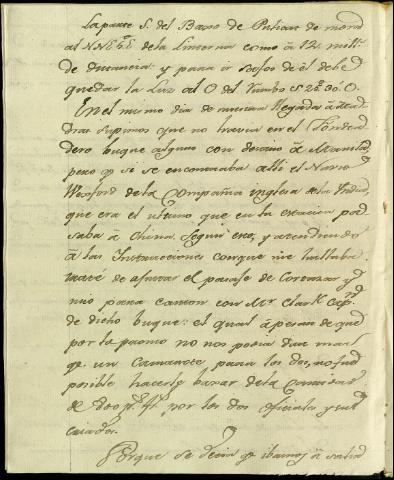 La parte S. del Baxo de Pulian de mora
al NNE5E de la Linterna como â 12 mill.s
de distancia: y para ir Safos de él debe
quedar la Luz al O del rumbo S 28º 30' O.
En el mismo dia de nuestra llegada â
dras supimos que no havia en el fondea
dero buque alguno con destino â Manila,
pero q.e si se encontraba alli el Navio
Wexford de la Compañia inglesa de la India,
que era el ultimo que en la estacion pa
saba â China. Segun eso, y atendiendo
â las Instrucciones conque me hallaba
traté de ajustar el pasaje de Cortazar y
mio para Canton con Mr. Clark Cap.n
de dicho buque: el qual â pesar de que
por lo pronto no nos podia dar mas
q.e un Camarote para los dos, no fué
posible hacerle baxar de la Cantidad
de por los dos oficiales y sus
criados.
Porque se decia q.e ibamos â salir